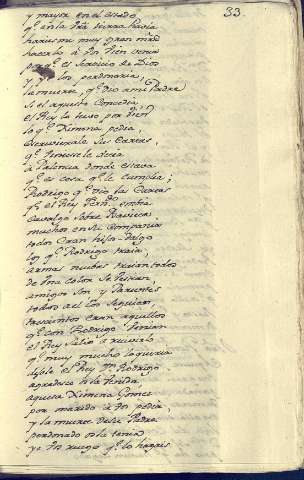 33.
y mayor en el estado,
qᵉ en la tra tierra havia
hariesme muy gran mrd
hacerlo à vos bien venia
porqᵉ es servicio de Dios
y yo los perdonaria,
la muerte, qᵉ dio à mi Padre
si el aquesto concedia
el Rey lo huvo por bien
lo qᵉ Ximena pedia,
escrivierale sus Cartas,
qᵉ viniesse le decia
à Palencia donde estava
qᵉ es cosa qᵉ le cumplia;
Rodrigo qᵉ vio las Cartas
qᵉ el Rey Fern.do embia
cavalgò sobre Bavieca
muchos en su Compañia
todos eran hijos-dalgo
los qᵉ Rodrigo traia,
armas nuebas traian todos
de una color se vestian
amigos son y Parientes
todos à el los seguian,
trescientos eran aquellos
qᵉ con Rodrigo venian
el Rey saliò à recivirlo
qᵉ muy mucho lo queria
dixole el Rey Dn Rodrigo
agradezco os la venida,
aquesta Ximena Gomez
por marido à vos pedia,
y la muerte de su Padre
perdonada os la tenia
yo vos ruego qᵉ lo hagais